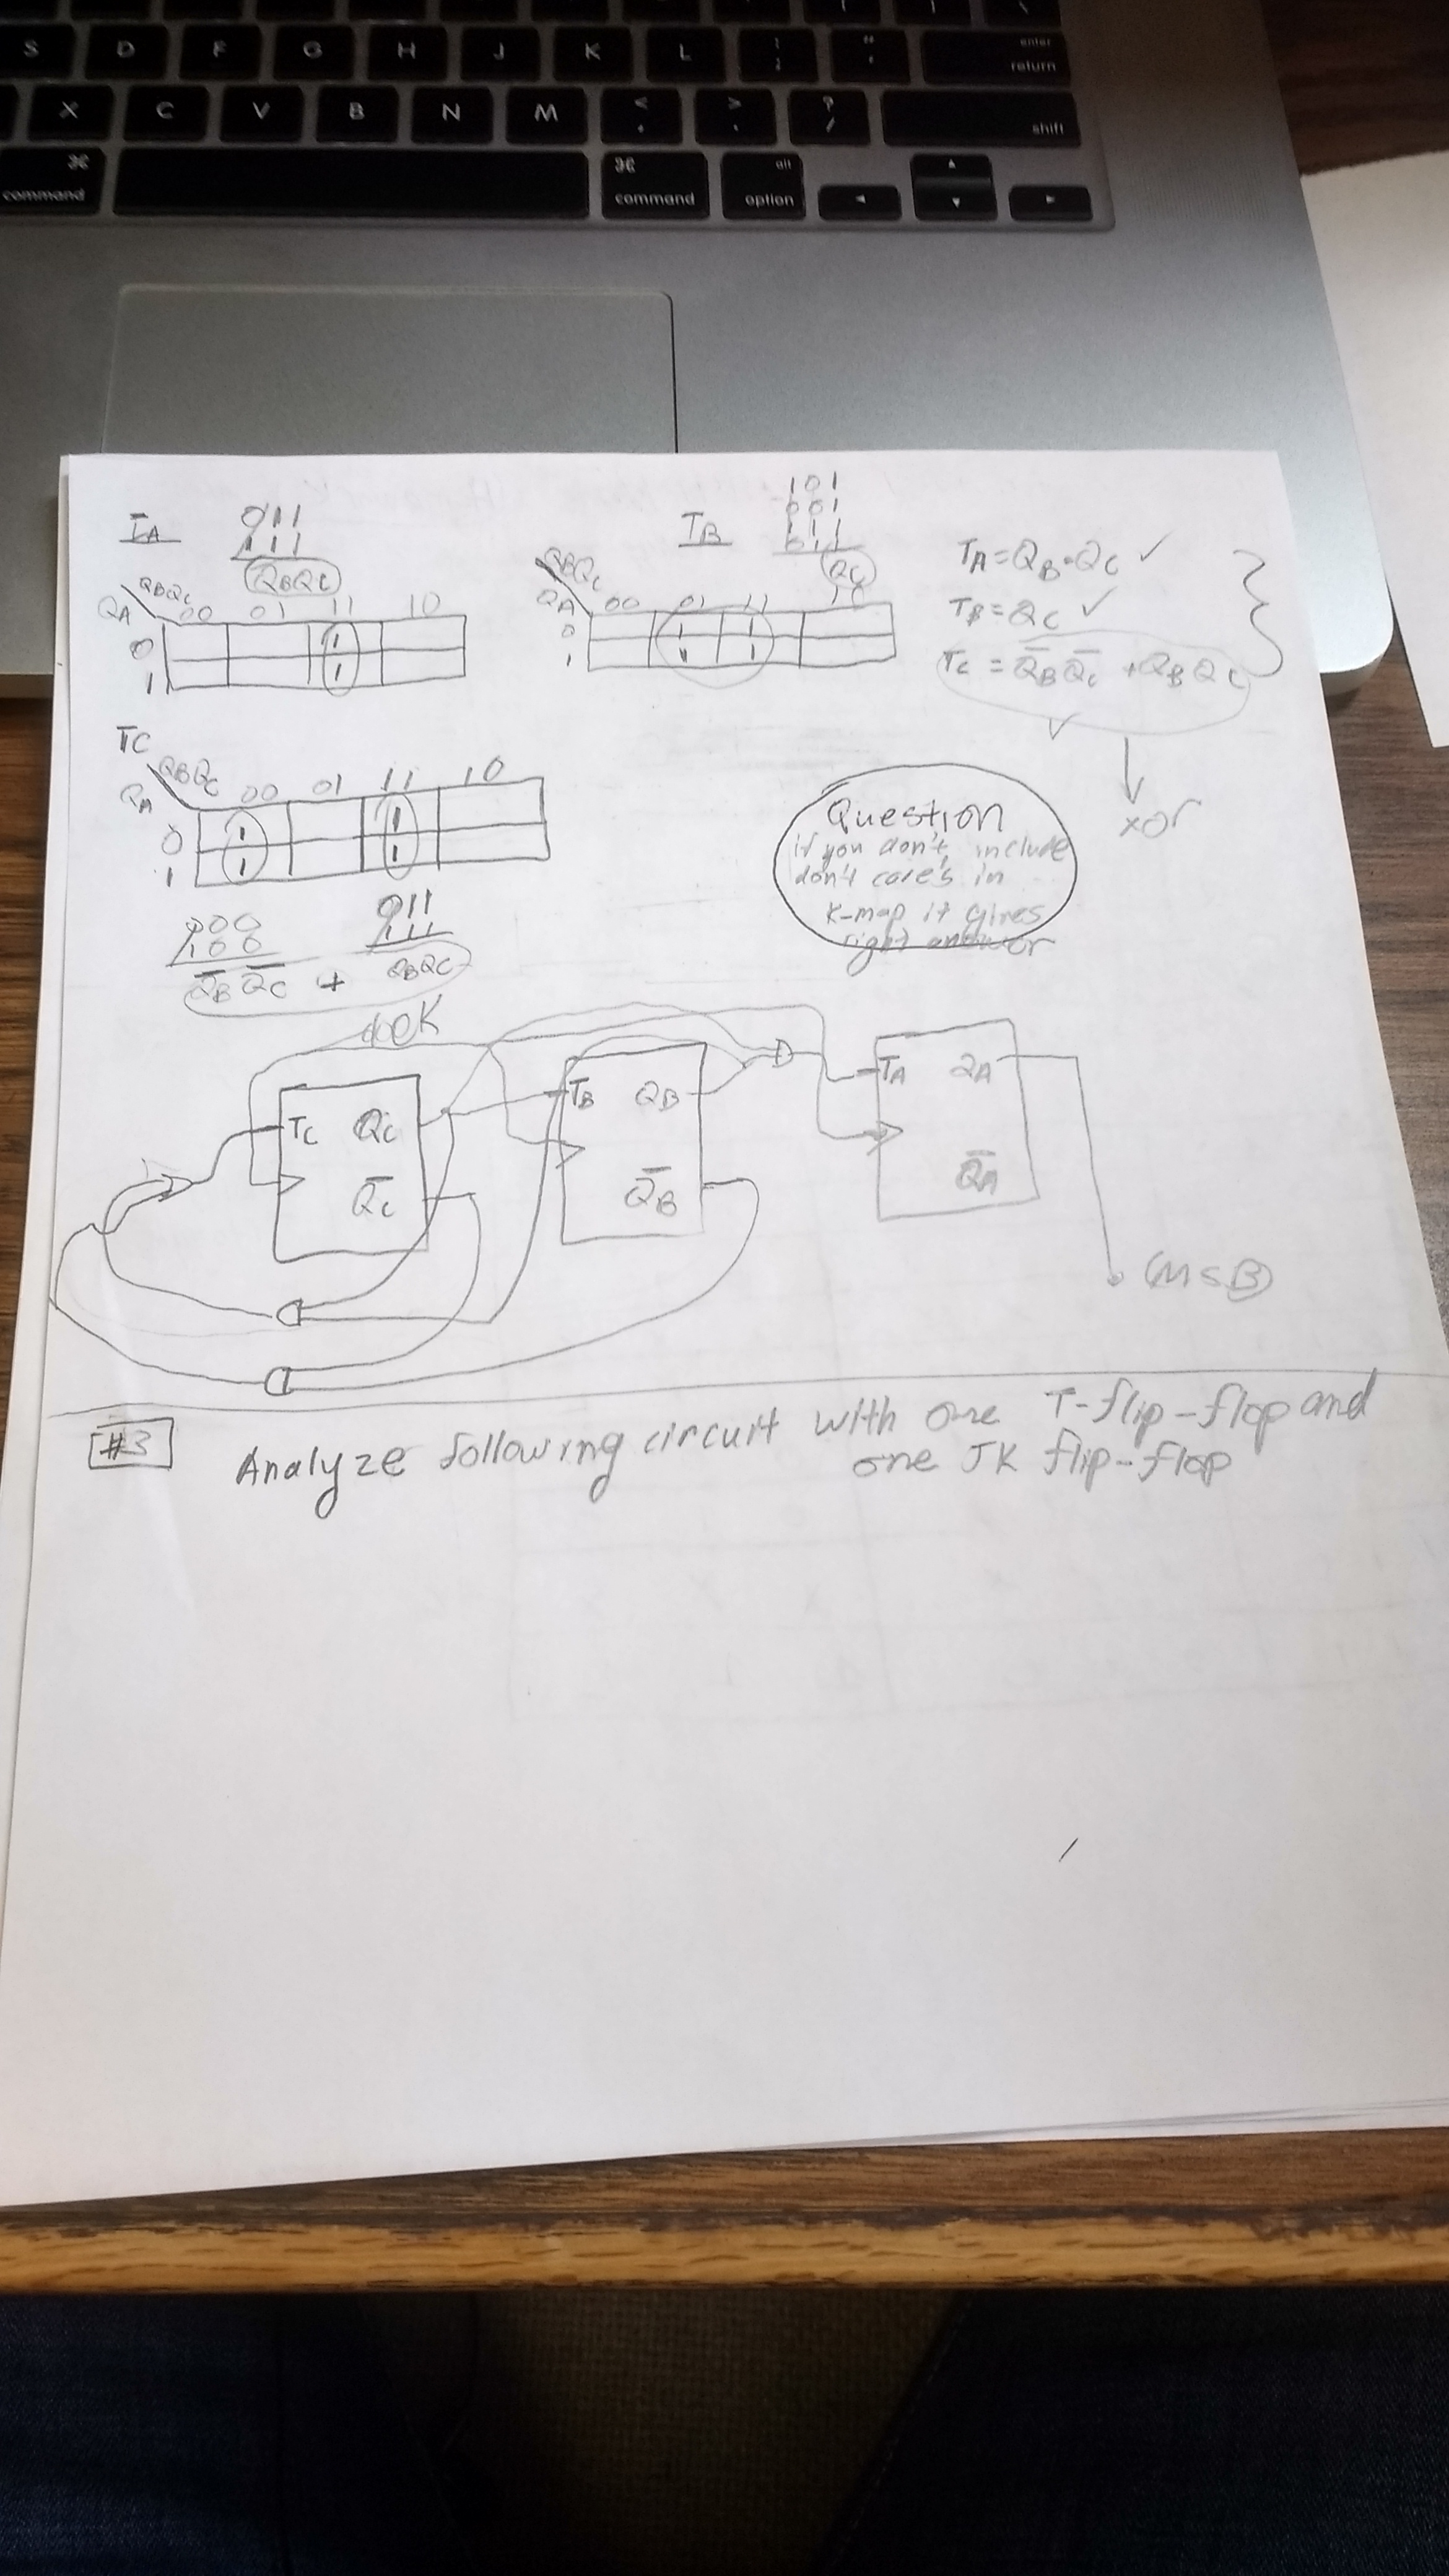 S D F G H J K L : ; " ' enter return
X C V B N M < , > . ? / shift
⌘ command ⌘ command alt option
TA
011
111
QBQC
QBQC
QA
00 01 11 10
0 1
1 1
TB
101
001
111
011
QC
QBQC
QA
00 01 11 10
0 1 1
1 1 1
TA = QB·QC ✓
TB = QC ✓
TC = Q̅B Q̅C + QB QC
✓
xor
TC
QBQC
QA
00 01 11 10
0 1 1
1 1 1
000
100
Q̅B Q̅C +
011
111
QBQC
Question
if you don't include
don't care's in
K-map it gives
right answer
TC QC
Q̅C
TB QB
Q̅B
TA QA
Q̅A
(MSB)
#3 Analyze following circuit with one T-flip-flop and
one JK flip-flop